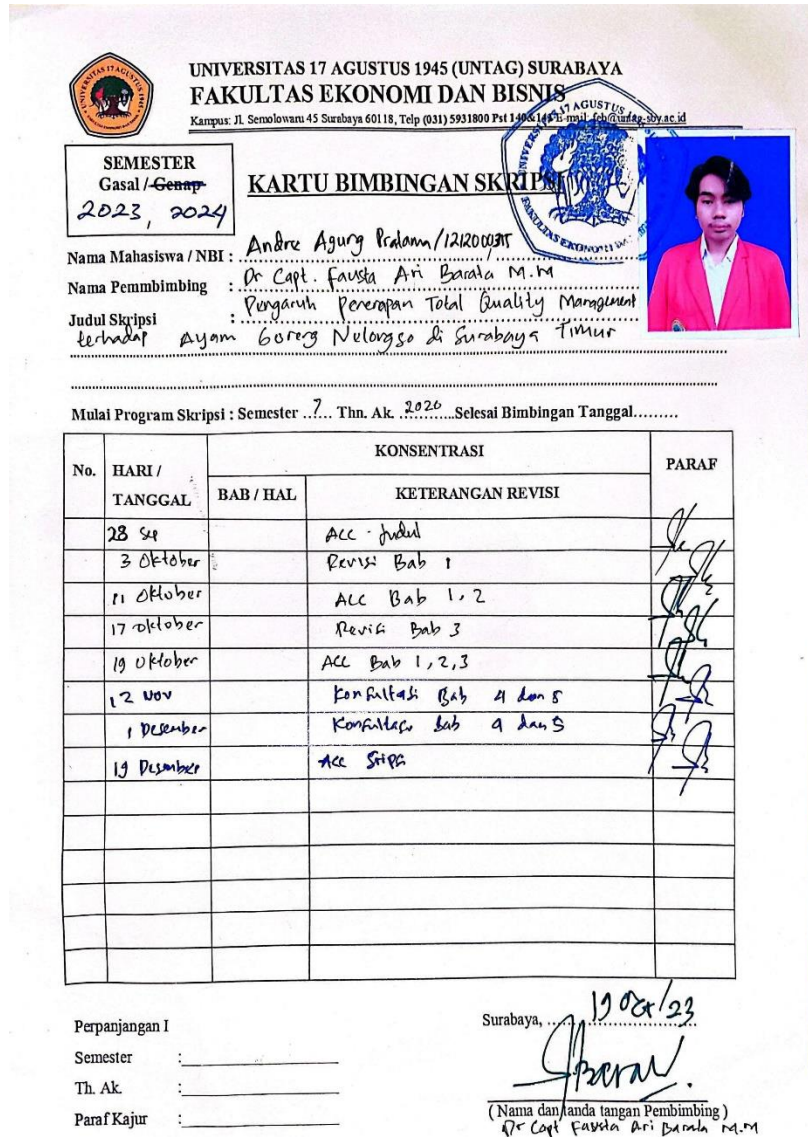 UNIVERSITAS 17 AGUSTUS 1945 (UNTAG) SURABAYA
FAKULTAS EKONOMI DAN BISNIS
Kampus: Jl. Semolowaru 45 Surabaya 60118, Telp (031) 5931800 Pst 140 & 141 E-mail: feb@untag-sby.ac.id
SEMESTER
Gasal / Genap
2023, 2024
KARTU BIMBINGAN SKRIPSI
Nama Mahasiswa / NBI : Andre Agung Pratama/
Nama Pemmbimbing : Dr Capt. Fausta Ari Barata M.M
Judul Skripsi : Pengaruh Penerapan Total Quality Management
terhadap Ayam Goreng Nelongso di Surabaya Timur
Mulai Program Skripsi : Semester ..7.... Thn. Ak. .2020......Selesai Bimbingan Tanggal.........
No. HARI / TANGGAL KONSENTRASI PARAF
BAB / HAL KETERANGAN REVISI
28 Sep ACC - Judul
3 Oktober Revisi Bab 1
11 Oktober ACC Bab 1, 2
17 Oktober Revisi Bab 3
19 Oktober ACC Bab 1, 2, 3
12 Nov Konsultasi Bab 4 dan 5
1 Desember Konsultasi Bab 4 dan 5
19 Desember ACC
Perpanjangan I
Semester :
Th. Ak. :
Paraf Kajur :
Surabaya, 19 Oct/23
( Nama dan tanda tangan Pembimbing )
Dr Capt Fausta Ari Barata M.M